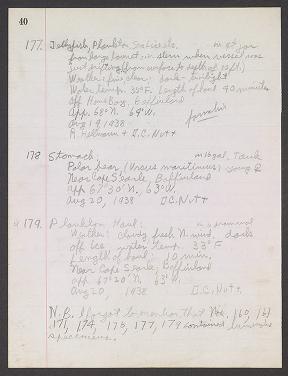 40
177. Jellyfish, Plankton, Sea lice etc. in qt jar
from large tow net in stern when vessel was
just drifting from surface to depth of
Weather: fine, clear; dark - twilight
Water temp. 33°F. Length of haul 40 minutes
off Home Bay, Baffinland
App. 68° N. 69° W. formalin
Aug 19, 1938
R. Heimann + D.C. Nutt
178 Stomach, in 10 gal. Tank
Polar bear (Ursus maritimus) young ♀
Near Cape Searle, Baffinland
App 67° 30' N., 63° W.
Aug 20, 1938 D.C. Nutt
179. Plankton Haul:
Weather: cloudy, fresh N. wind, dark
off Ice water temp. 33°F
Length of haul, 10 min.
Near Cape Searle, Baffinland
app. 67° 20' N. 63° W.
Aug 20, 1938 D.C. Nutt.
N.B. I forgot to mention that Nos. 160, 161
171, 174, 175, 177, 179 contained luminous
specimens.